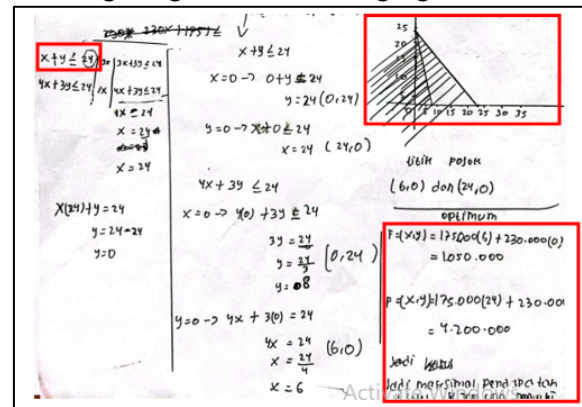 x+y ≤ 24
4x+3y ≤ 24
3x
1x
3x+3y ≤ 24
4x+3y ≤ 24
x = 24
x = 24
X(24)+y = 24
y = 24-24
y = 0
x+y ≤ 24
x=0 → 0+y ≤ 24
y = 24 (0,24)
y=0 → x+0 ≤ 24
x = 24 (24,0)
4x + 3y ≤ 24
x=0 → 4(0) + 3y ≤ 24
3y = 24
y = 24/3
y = 8
(0,24)
y=0 → 4x + 3(0) = 24
4x = 24
x = 24/4
x = 6
(6,0)
25
20
15
10
5
0 5 10 15 20 25 30 35
titik pojok
(6,0) dan (24,0)
optimum
F=(x,y) = 175.000(6) + 230.000(0)
= 1.050.000
F=(x,y) = 175.000(24) + 230.00
= 4.200.000
Jadi
Jadi maksimal pendapatan
Activate Windows